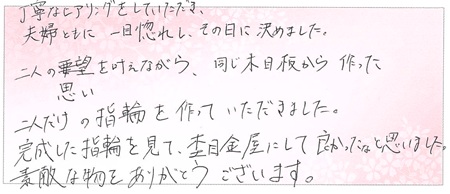 丁寧なヒアリングをしていただき、
夫婦ともに一目惚れし、その日に決めました。
二人の要望を叶えながら、同じ木目板から作った
思い
二人だけの指輪を作っていただきました。
完成した指輪を見て、杢目金屋にして良かったなと思いました。
素敵な物をありがとうございます。